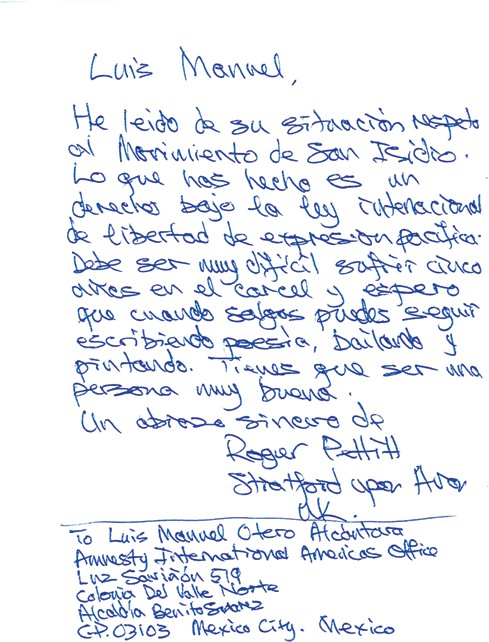 Luis Manuel,
He leido de su situación respeto
al Movimiento de San Isidio.
Lo que has hecho es un
derechos bajo la ley internacional
de libertad de expresión pacifica.
Debe ser muy difícil sufrir cinco
años en el carcel y espero
que cuando salgas puedes seguir
escribiendo poesía, bailando y
pintando. Tienes que ser una
persona muy buena.
Un abrazo sincero de
Roger Pettitt
Stratford upon Avon
UK.
To Luis Manuel Otero Alcántara
Amnesty International Americas Office
Luz Saviñón 519
Colonia Del Valle Norte
Alcaldía Benito Suarez
C.P. 03103 Mexico City. Mexico